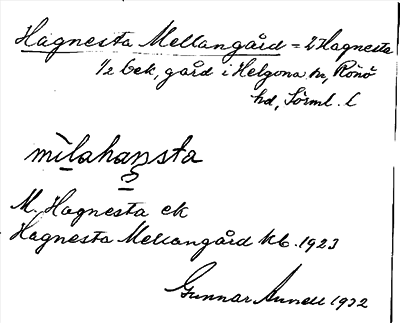 Hagnesta Mellangård = 2 Hagnesta
1/2 bek, gård i Helgona sn, Rönö
hd, Sörml. l
mìlahansta
M. Hagnesta ek
Hagnesta Mellangård kb. 1923
Gunnar 1932